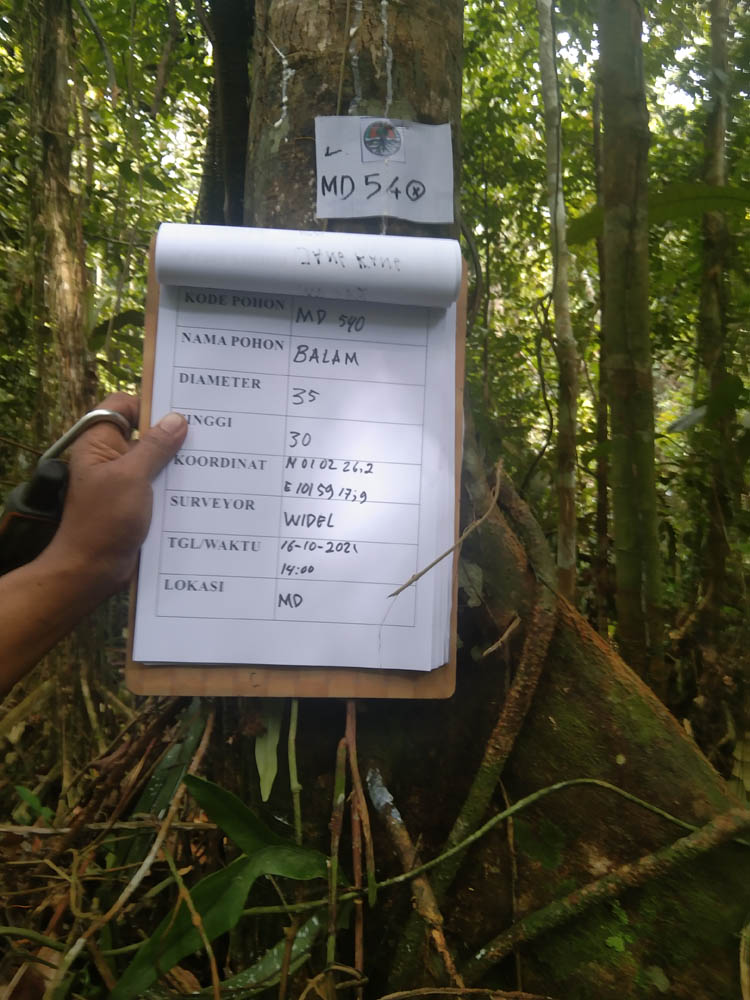 MD 540
KODE POHON MD 540
NAMA POHON BALAM
DIAMETER 35
TINGGI 30
KOORDINAT N 01 02 26,2
E 101 59 17,9
SURVEYOR WIDEL
TGL/WAKTU 16-10-2021
14:00
LOKASI MD